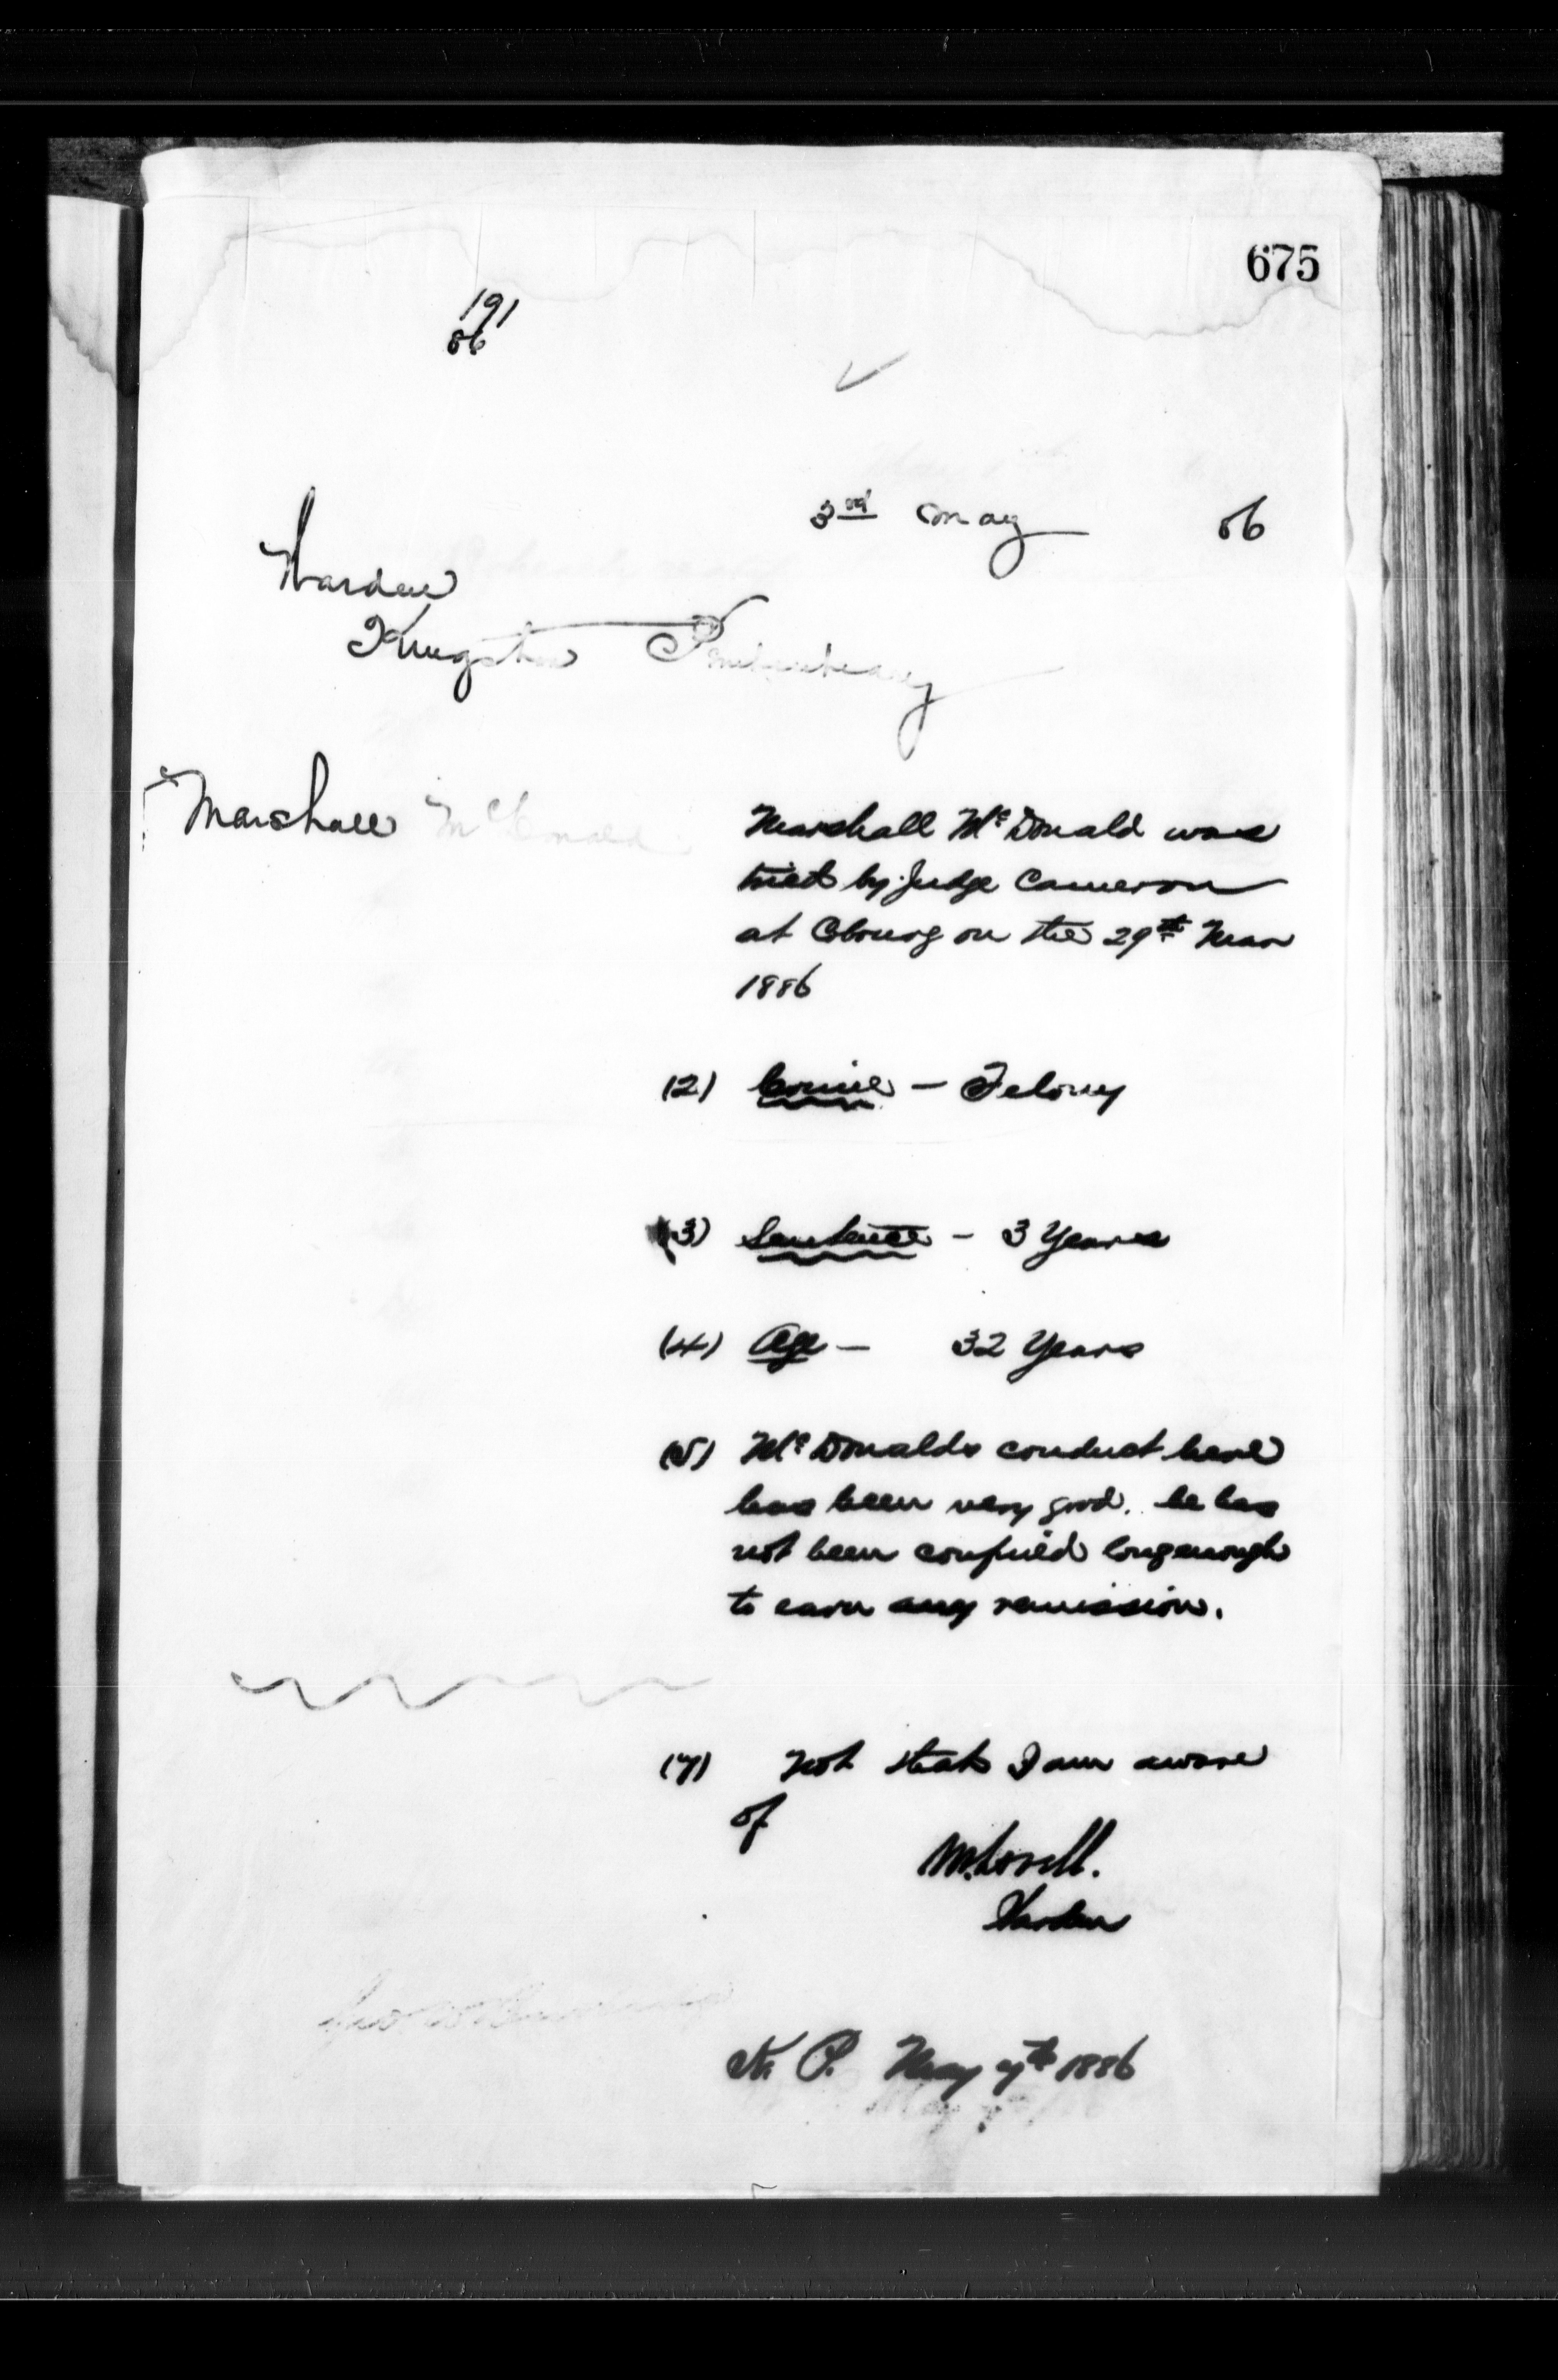 675
191
86
3rd May 86
Warden
Kingston Penitentiary
Marshall McDonald
Marshall Mc Donald was
tried by Judge Cameron
at Cobourg on the 29th Mar
1886
(2) Crime - Felony
(3) Sentence - 3 Years
(4) Age - 32 Years
(5) Mc Donalds conduct here
has been very good. he has
not been confined long enough
to earn any remission.
(7) Not that I am aware
of
M. Lavell.
Warden
K. P. May 7th 1886